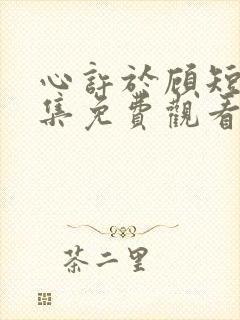 心許於顧短
集免費觀看
茶二里